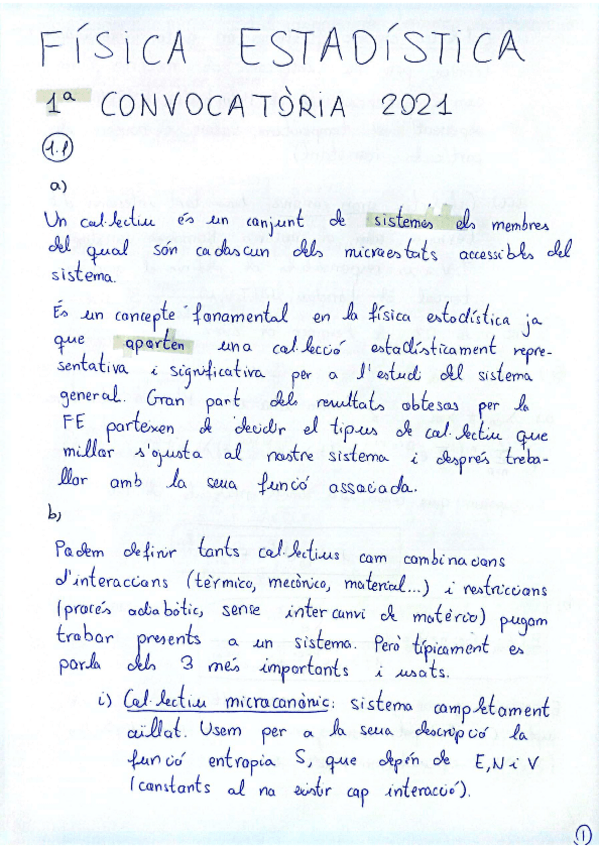 FÍSICA ESTADÍSTICA
1ª CONVOCATÒRIA 2021
1.1
a)
Un col·lectiu és un conjunt de sistemes els membres
del qual són cadascun dels microestats accessibles del
sistema.
És un concepte fonamental en la física estadística ja
que aporten una col·lecció estadísticament repre-
sentativa i significativa per a l'estudi del sistema
general. Gran part dels resultats obtesos per la
FE parteixen de decidir el tipus de col·lectiu que
millor s'ajusta al nostre sistema i després treba-
llar amb la seua funció associada.
b)
Podem definir tants col·lectius com combinacions
d'interaccions (tèrmica, mecànica, material...) i restriccions
(procés adiabàtic, sense intercanvi de matèria) pugam
trobar presents a un sistema. Però típicament es
parla dels 3 més importants i usats.
i) Col·lectiu microcanònic: sistema completament
aïllat. Usem per a la seua descripció la
funció entropia S, que depén de E, N i V
(constants al no existir cap interacció).
1